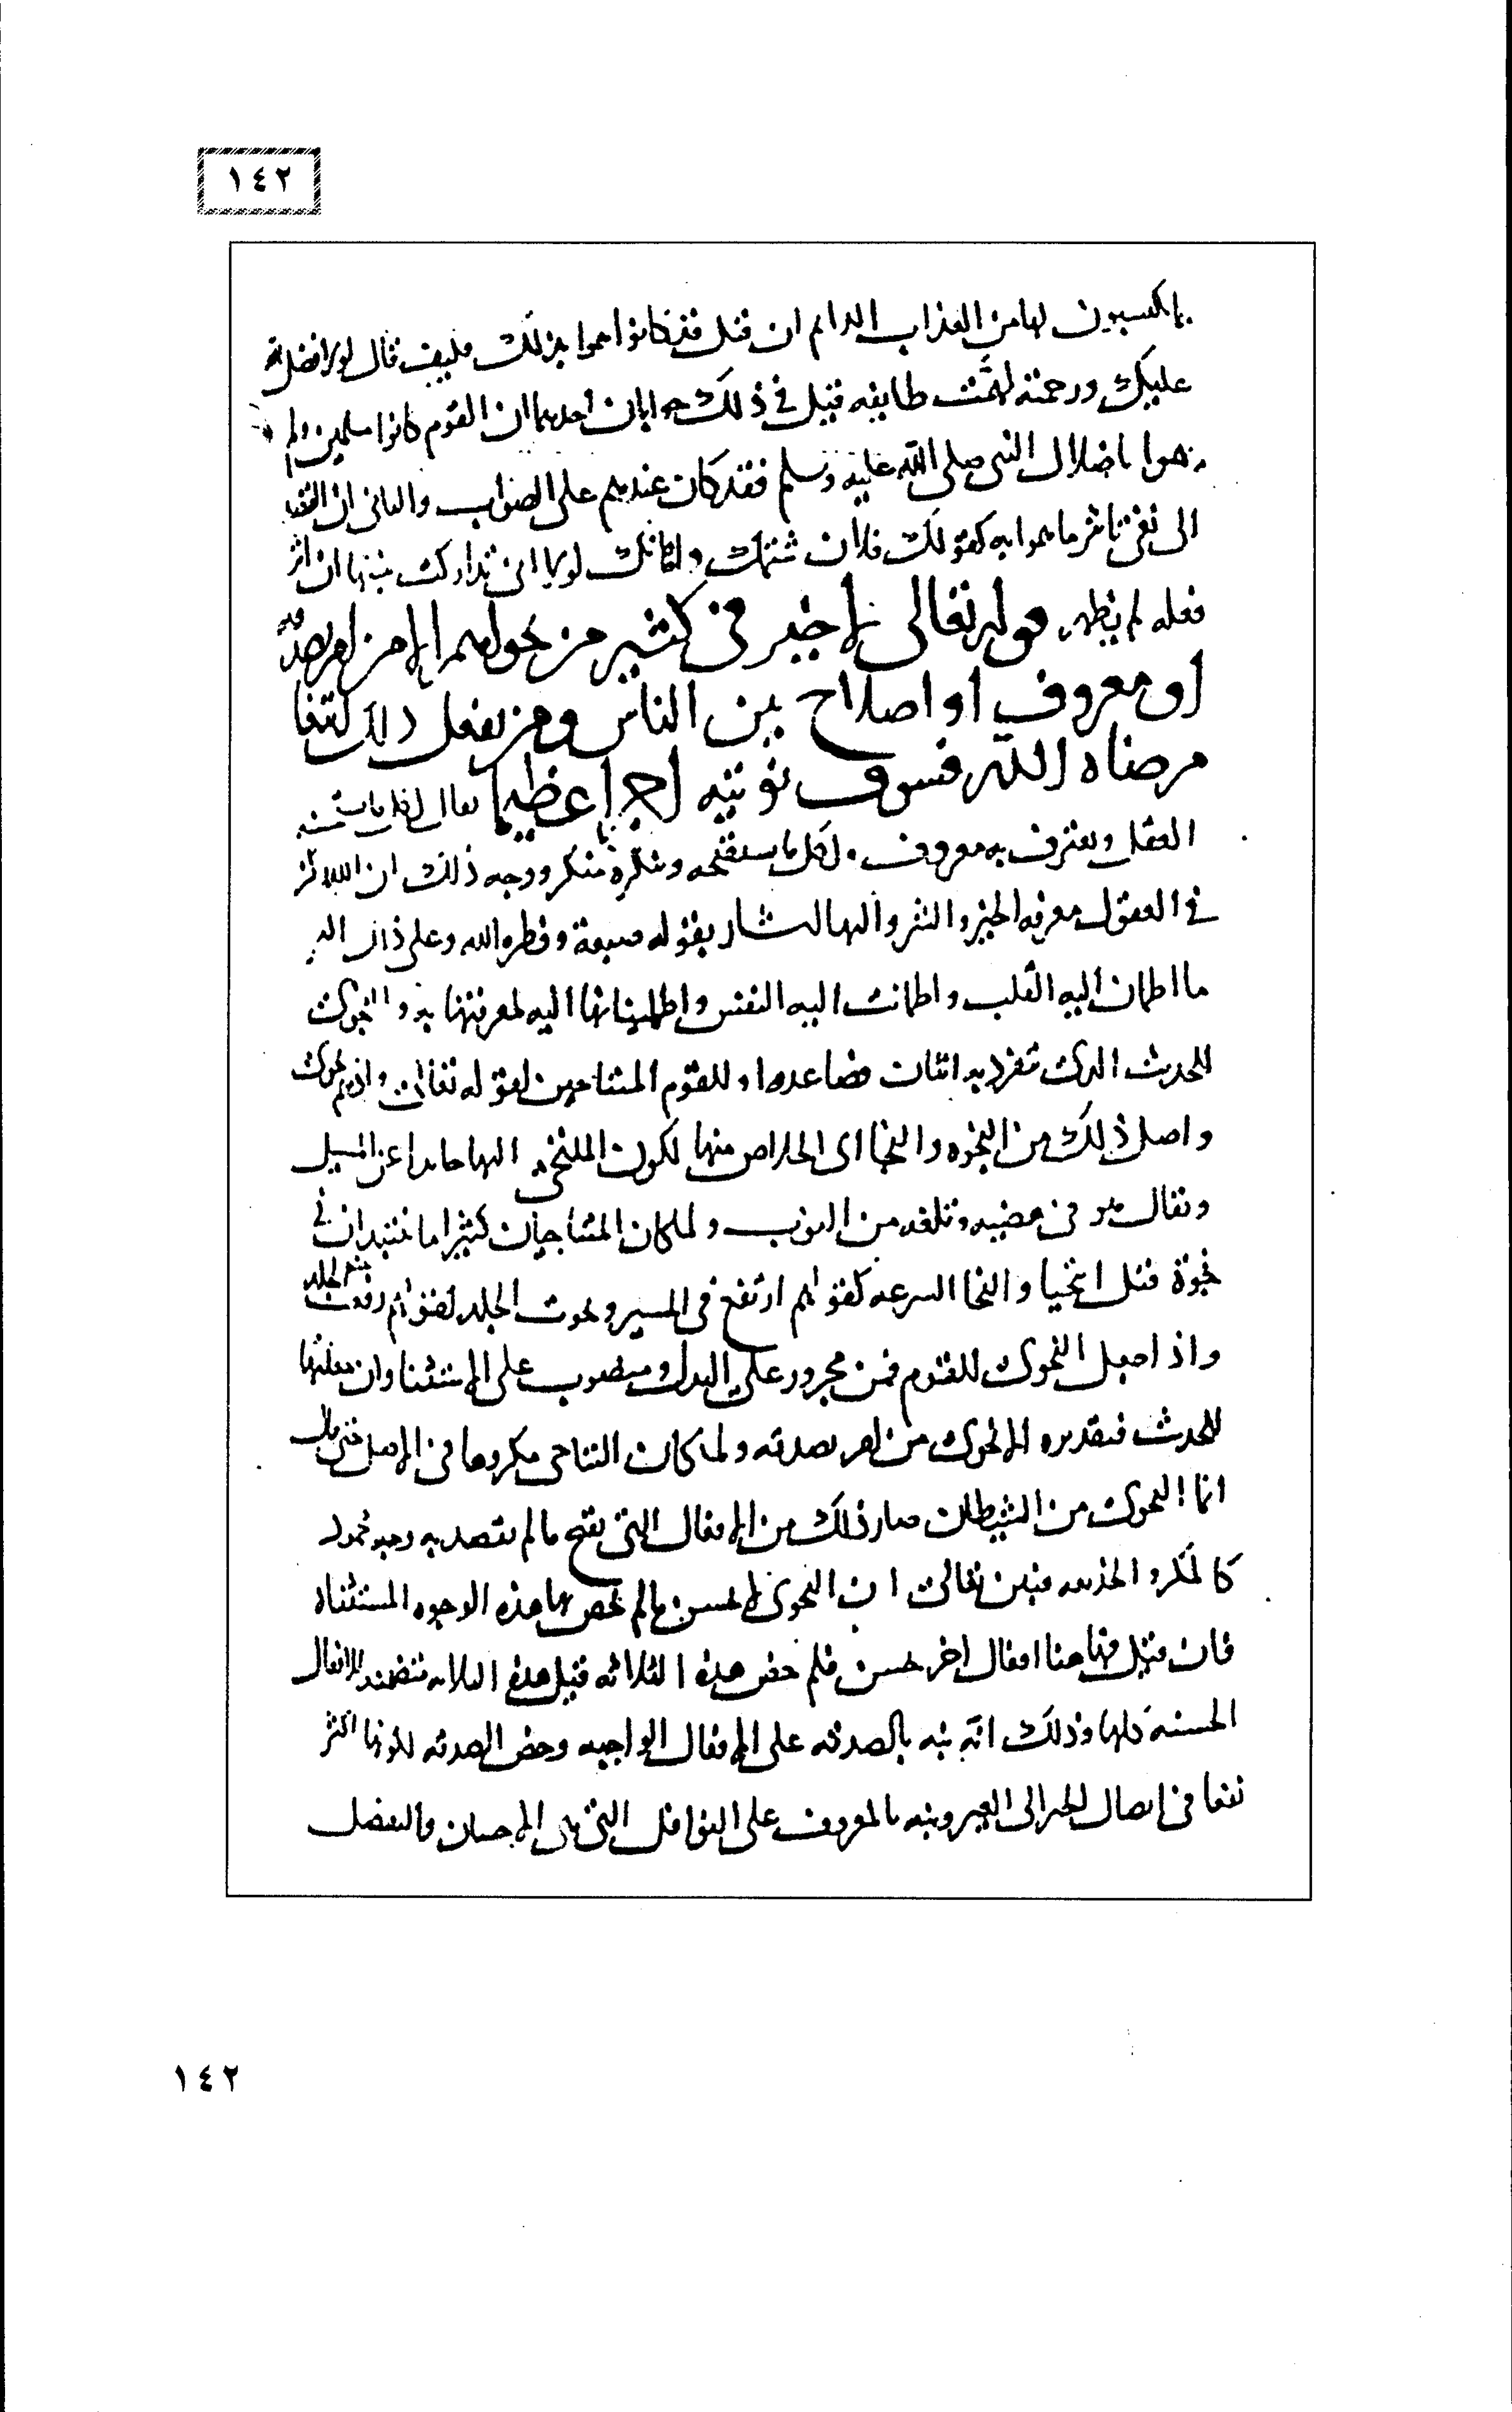 ١٤٢
يكسبون لها من العذاب الدايم ان قيل فقد كانوا هموا بذلك فكيف قال لولا فضل الله
عليك ورحمته لهمت طايفه قيل في ذلك جوابان احدهما ان القوم كانوا مسلمين ولم
يهموا باضلال النبي صلى الله عليه وسلم فقد كان عندهم على الصواب والثاني ان القصد
الى نفي تاثير ما هموا به كقولك فلان شتمك واهانك لولا اني تداركت تنبيها ان اثر
فعله لم يظهر قوله تعالى لا خير في كثير من نجواهم الا من امر بصدقه
او معروف او اصلاح بين الناس ومن يفعل ذلك ابتغا
مرضاه الله فسوف نوتيه اجرا عظيما يقال لكل ما يستحسنه
العقل ويعترف به معروف ولكل ما يستقبحه وينكره منكر ووجه ذلك ان الله ركز
في العقول معرفه الخير والشر واليها اشار بقوله صبغة وفطره الله وعلى ذلك البر
ما اطمان اليه القلب واطمانت اليه النفس واطمينانها اليه لمعرفتها به والنجوى
للحديث الذي تفرد به اثنان فصاعدا وللقوم المتناجين لقوله تعالى واذ هم نجوى
واصل ذلك من النجوه والنجا اى الخلاص منها لكون الملتجي اليها حايدا عن المسيل
ويقال هو في عصبيه وتلعه من النوب ولما كان المتناجيان كثيرا ما ينتبذان في
نجوة قيل انتجيا والنجا السرعه كقولهم ارتفع في المسير ونجوت الجلد لقولهم رفعت عنه الجلد
واذا جعل النجوى للقوم فمن مجرور على البدل ومنصوب على الاستثنا وان جعلتها
للحديث فتقديره الا نجوى من امر بصدقه ولما كان التناجي مكروها في الاصل حتى قال
انما النجوى من الشيطان صار ذلك من الافعال التي تقبح ما لم يقصد به وجه محمود
كالمكر والخديعه فبين تعالى ان النجوى لا تحسن ما لم تخص بها هذه الوجوه المستثناه
فان قيل فهاهنا افعال اخر تحسن فلم خص هذه الثلاثه قيل هذه الثلاثه متضمنه للافعال
الحسنة كلها وذلك انه نبه بالصدقه على الافعال الواجبه وخص الصدقه لكونها اكثر
نفعا في ايصال الخير الى الغير ونبه بالمعروف على النوافل التي هي الاحسان والتفضل
١٤٢